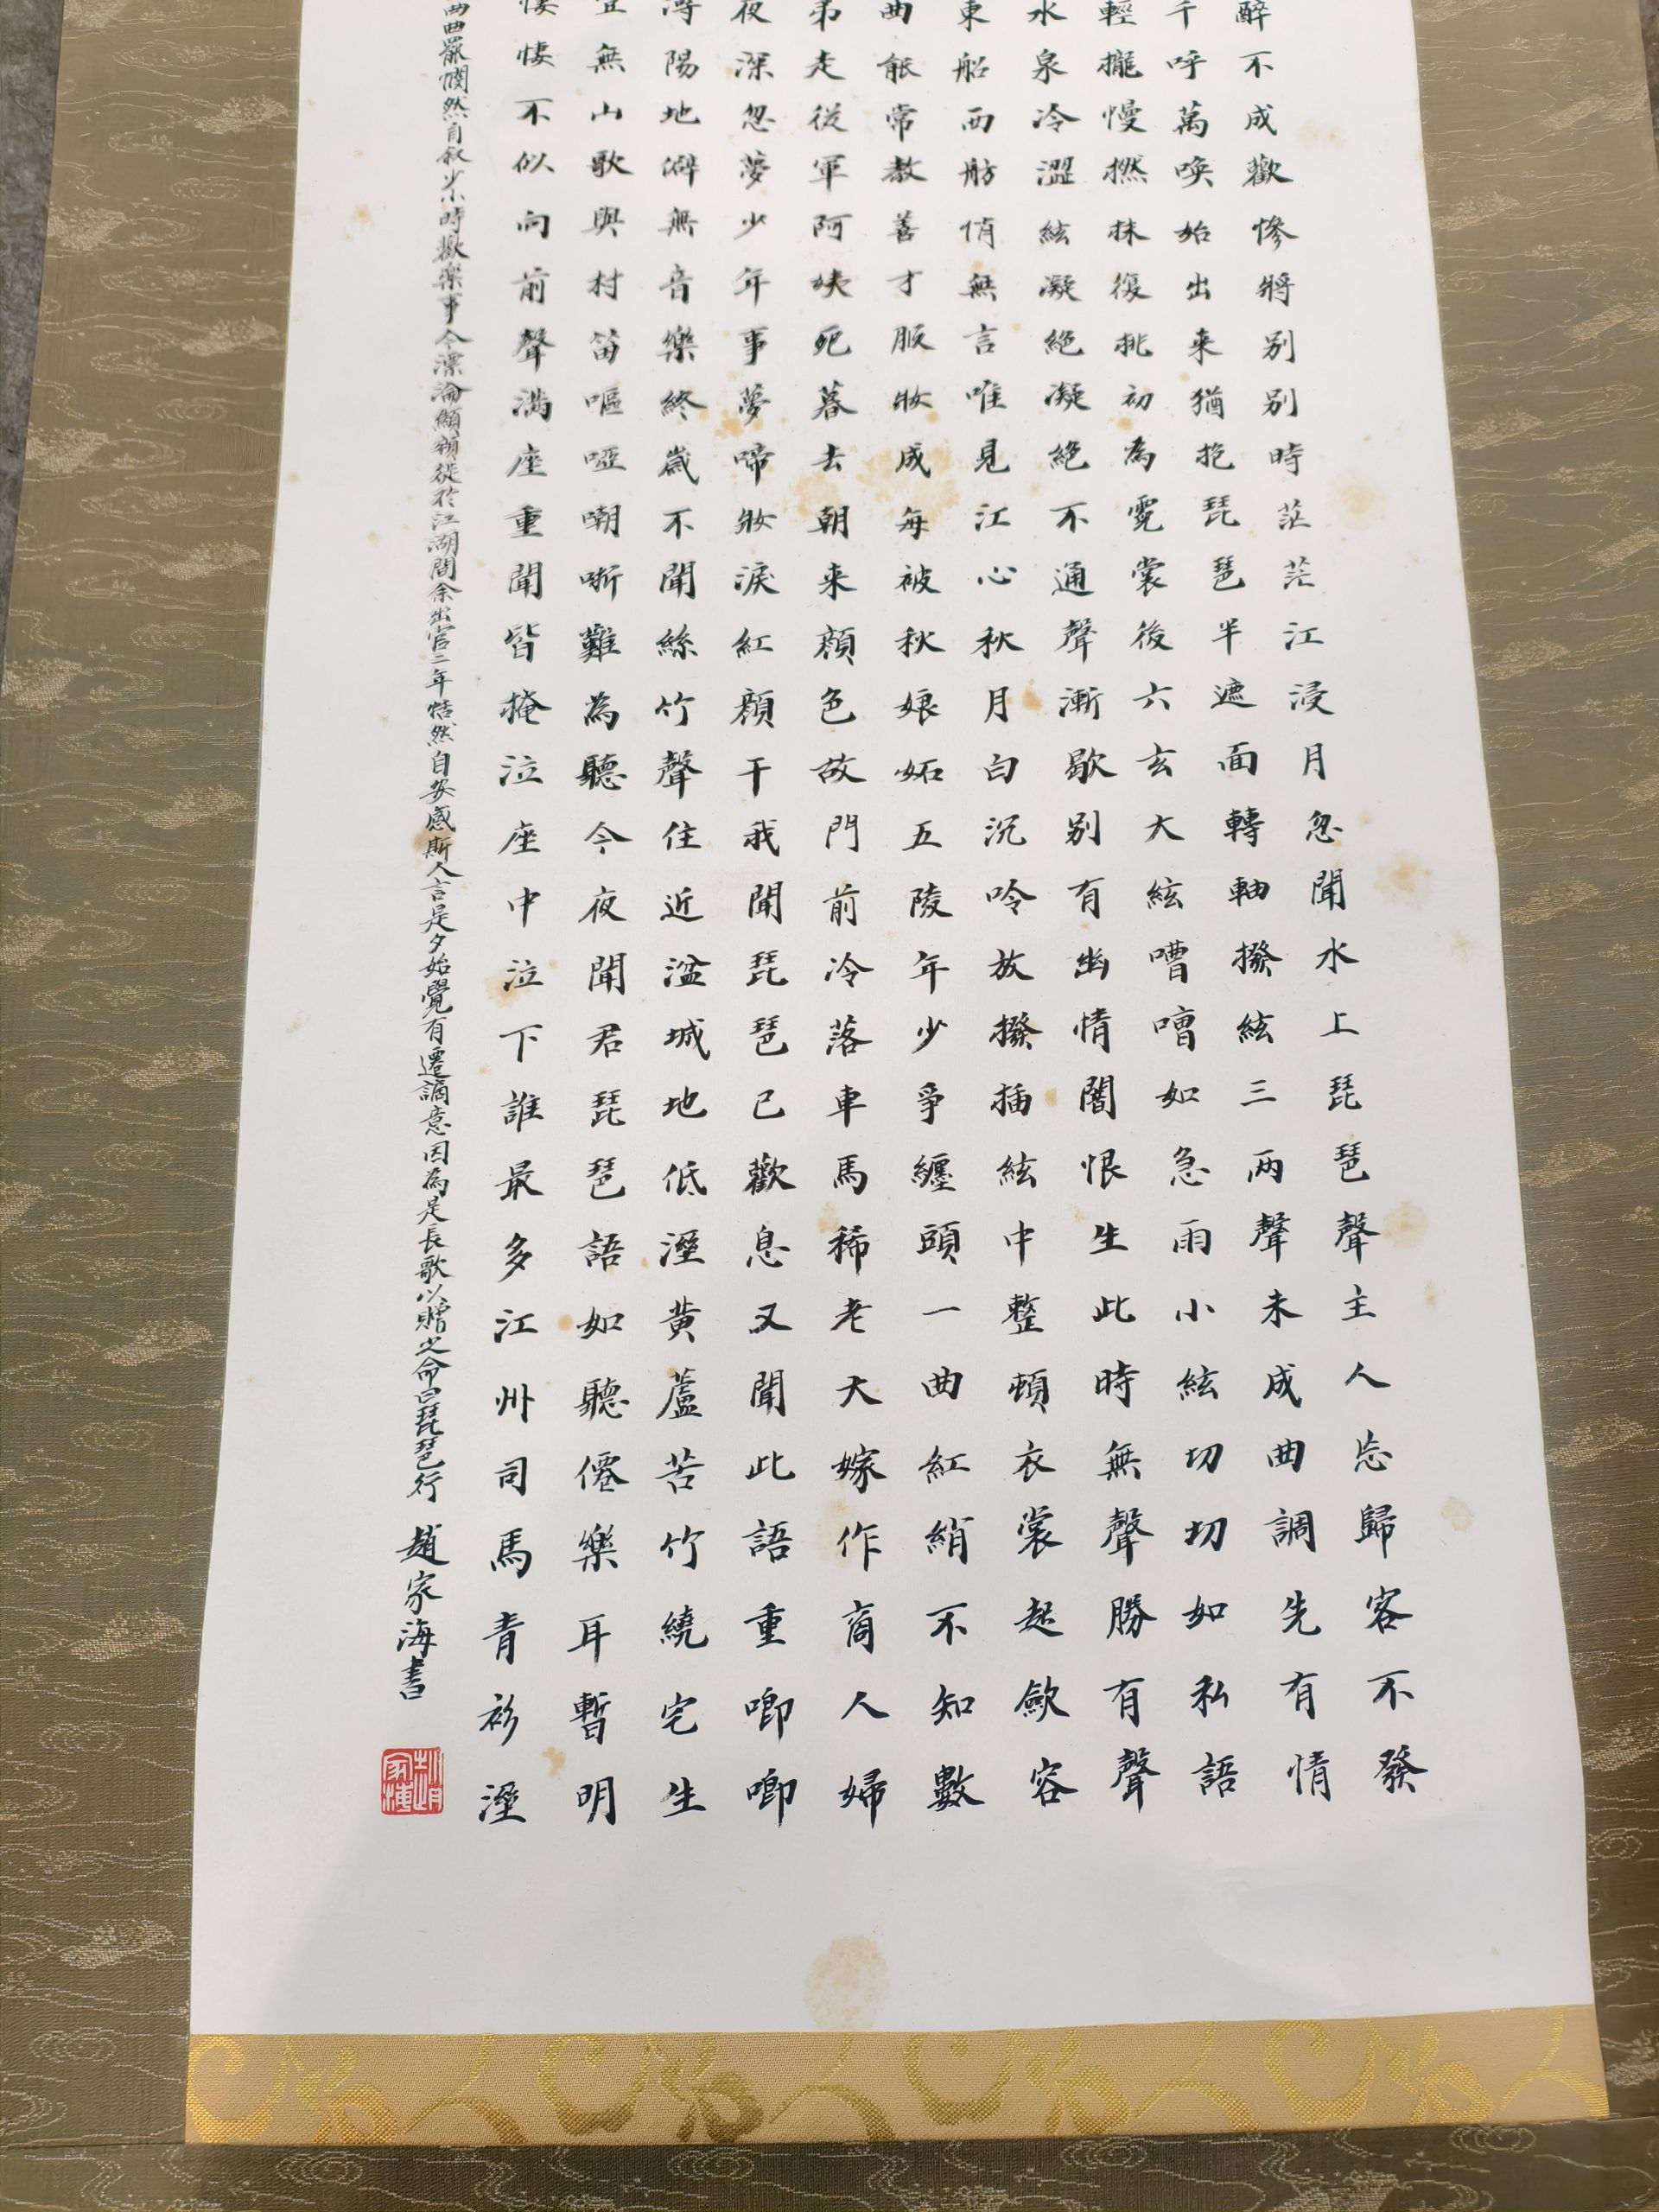 醉不成歡慘將别别時茫茫江浸月忽聞水上琵琶聲主人忘歸客不發
千呼萬喚始出来猶抱琵琶半遮面轉軸撥絃三两聲未成曲調先有情
輕攏慢撚抹復挑初為霓裳後六玄大絃嘈嘈如急雨小絃切切如私語
水泉冷澀絃凝絕凝絕不通聲漸歇别有幽情闇恨生此時無聲勝有聲
東船西舫悄無言唯見江心秋月白沉吟放撥插絃中整頓衣裳起斂容
曲能常教善才服妝成每被秋娘妬五陵年少爭纏頭一曲紅綃不知數
弟走從軍阿姨死暮去朝来顏色故門前冷落車馬稀老大嫁作商人婦
夜深忽夢少年事夢啼妝淚紅顏干我聞琵琶已歡息又聞此語重唧唧
潯陽地僻無音樂終歲不聞絲竹聲住近湓城地低溼黄蘆苦竹繞宅生
豈無山歌與村笛嘔啞嘲哳難為聽今夜聞君琵琶語如聽僊樂耳暫明
悽悽不似向前聲满座重聞皆掩泣座中泣下誰最多江州司馬青衫溼
曲罷憫然自叙少小時歡樂事今漂淪顦顇徙於江湖間余出官二年恬然自安感斯人言是夕始覺有遷謫意因為是長歌以贈之命曰琵琶行 趙家海書
趙家海